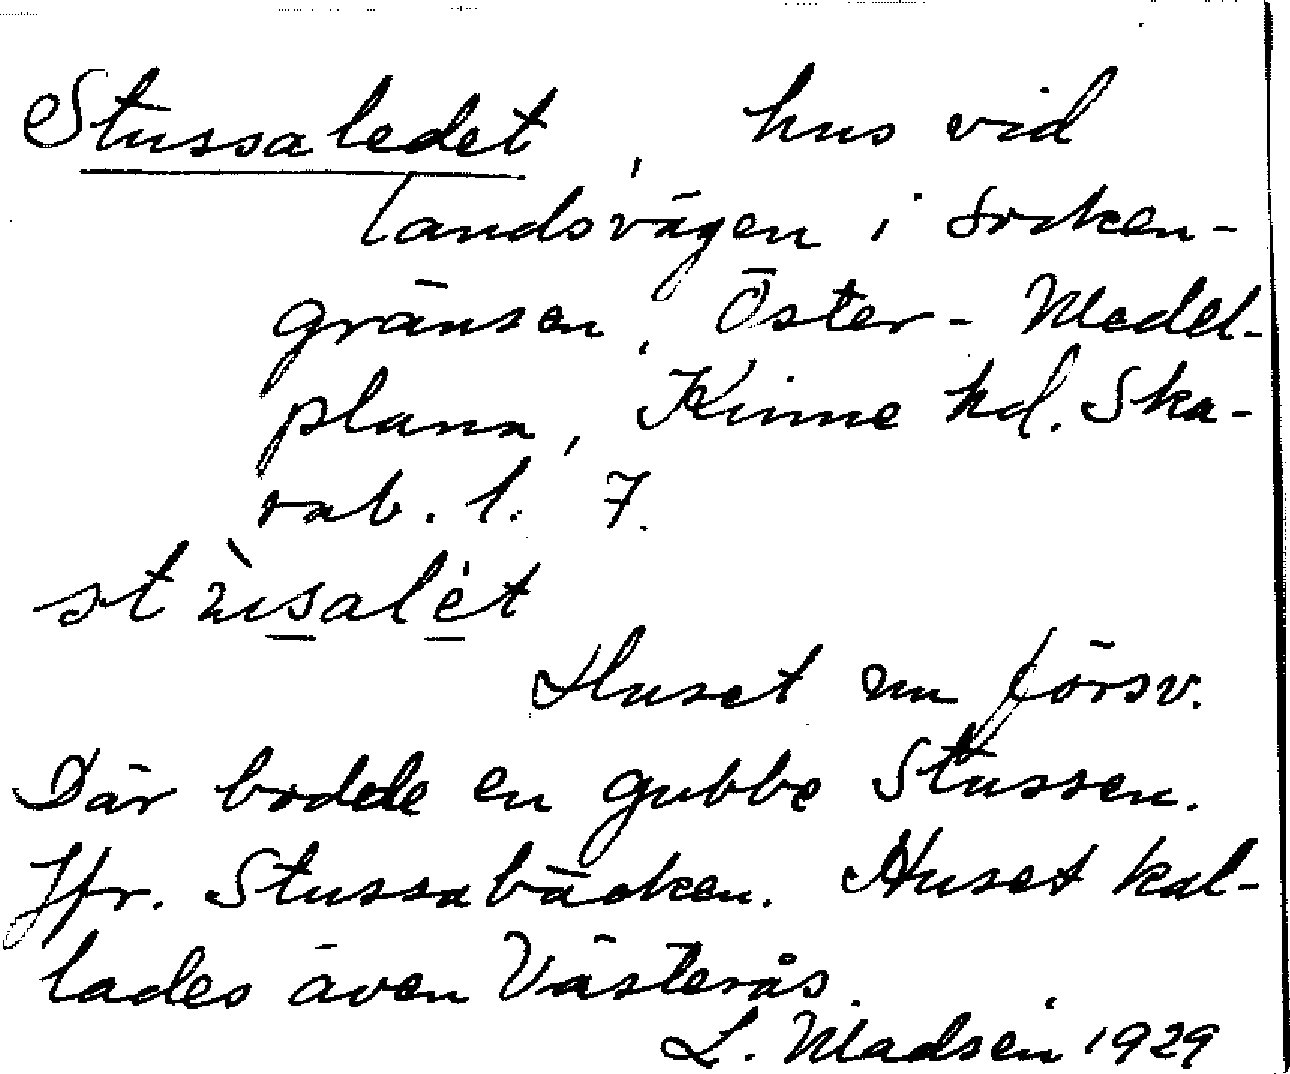 Stussaledet, hus vid
landsvägen i socken-
gränsen, Öster-Medel-
plana, Kinne hd. Ska-
rab. l. 7.
stùsalét
Huset nu försv.
Där bodde en gubbe Stussen.
Jfr. Stussabäcken. Huset kal-
lades även Västerås.
L. Madsén 1929